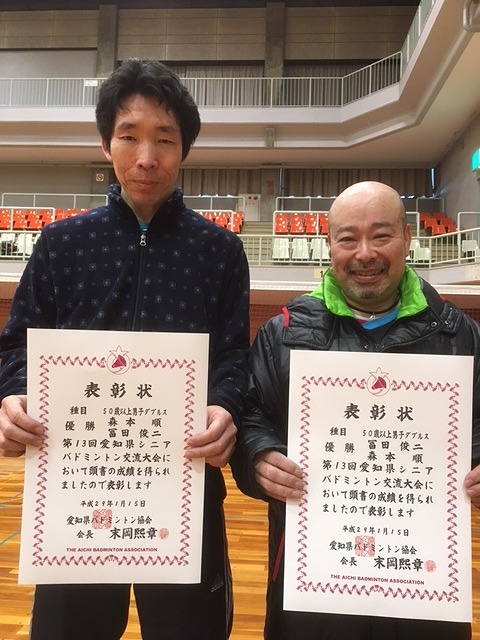 表彰状
種目 50歳以上男子ダブルス
優勝 森本 順
冨田 俊二
第13回愛知県シニア
バドミントン交流大会に
おいて頭書の成績を得られ
ましたので表彰します
平成29年1月15日
愛知県バドミントン協会
会長 末岡熙章
THE AICHI BADMINTON ASSOCIATION
表彰状
種目 50歳以上男子ダブルス
優勝 冨田 俊二
森本 順
第13回愛知県シニア
バドミントン交流大会に
おいて頭書の成績を得られ
ましたので表彰します
平成29年1月15日
愛知県バドミントン協会
会長 末岡熙章
THE AICHI BADMINTON ASSOCIATION